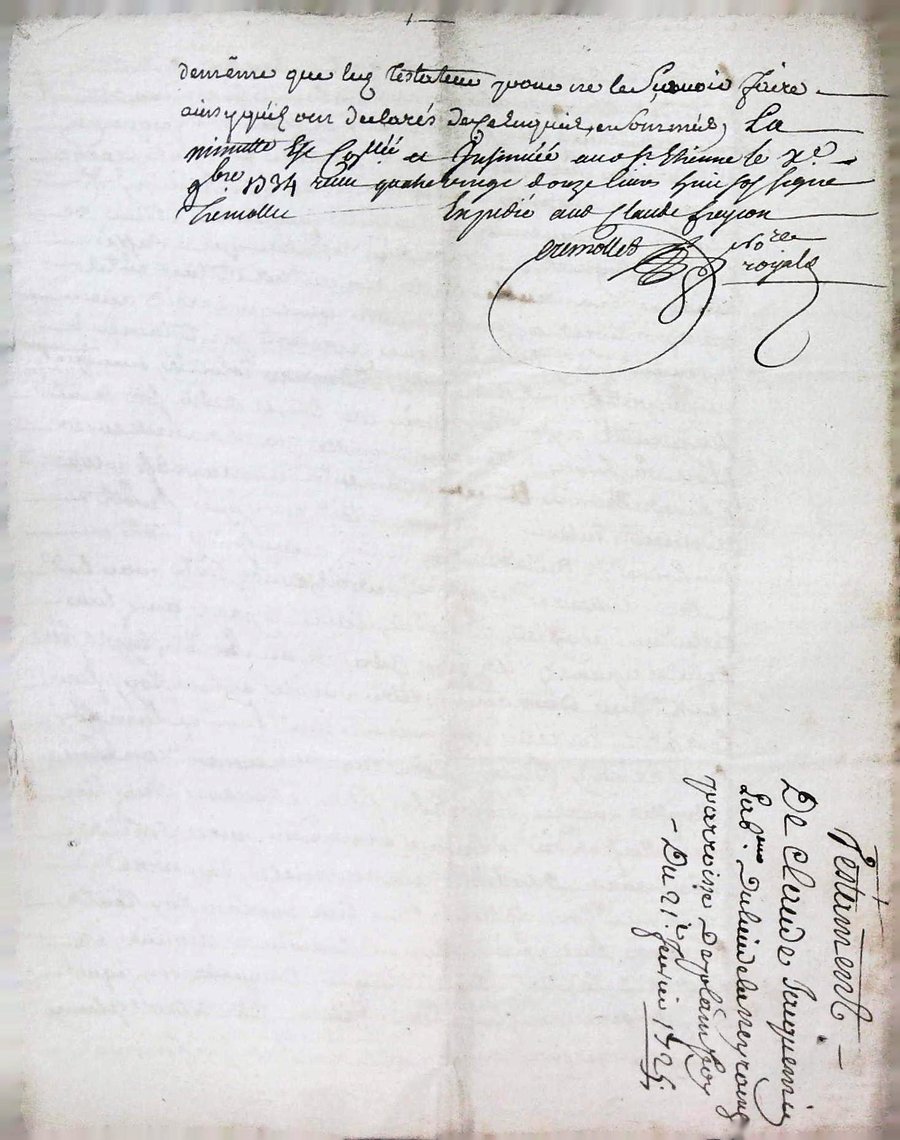 demême que luy testateur pour ne le sçavoir faire
ainsy quils ont declarés de ce enquis, en sommés, La
minutte Est Collée et Insinuée aud St Etienne le
9bre 1734 reçu quatrevingt douze livres huit sols signé
Tremollet Expedié aud Claude freycon
Tremollet
No.re
royal
Testament
De Claude Jaquemin
Lab.eur Du lieu de la neyrang
parroisse De planfoy
Du 21e. fevrier 1725